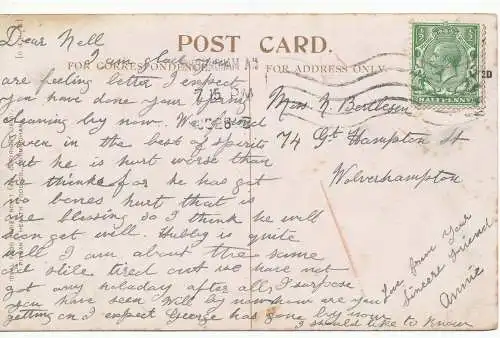 Dear Nell
POST CARD.
FOR CORRESPONDENCE
FOR ADDRESS ONLY.
HALFPENNY
7.15 PM
I am glad you
are feeling better I expect
you have done your spring
cleaning by now. Will
even in the best of spirits
but he is hurt worse than
he thinks for he has got
no bones hurt that is
one blessing so I think he will
soon get well. Hubby is quite
well I am about the same
get tired out we have not
got any holiday after all, I suppose
you have seen Will by now how are you
getting on I expect George has gone by now
I should like to know
Miss N
74 Gt Hampton St
Wolverhampton
from Your
Sincere Friend
Annie